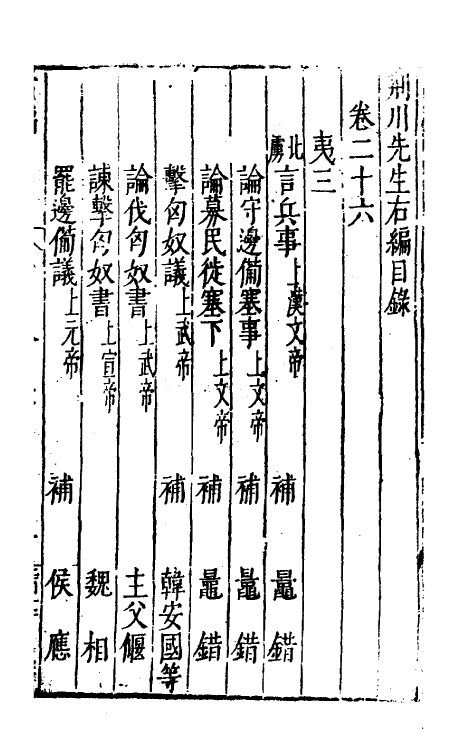 荆川先生右編目錄
卷二十六
夷三
北虜
言兵事上漢文帝 補 鼂錯
論守邊備塞事上文帝 補 鼂錯
論募民徙塞下上文帝 補 鼂錯
擊匈奴議上武帝 補 韓安國等
論伐匈奴書上武帝 主父偃
諫擊匈奴書上宣帝 魏相
罷邊備議上元帝 補 侯應